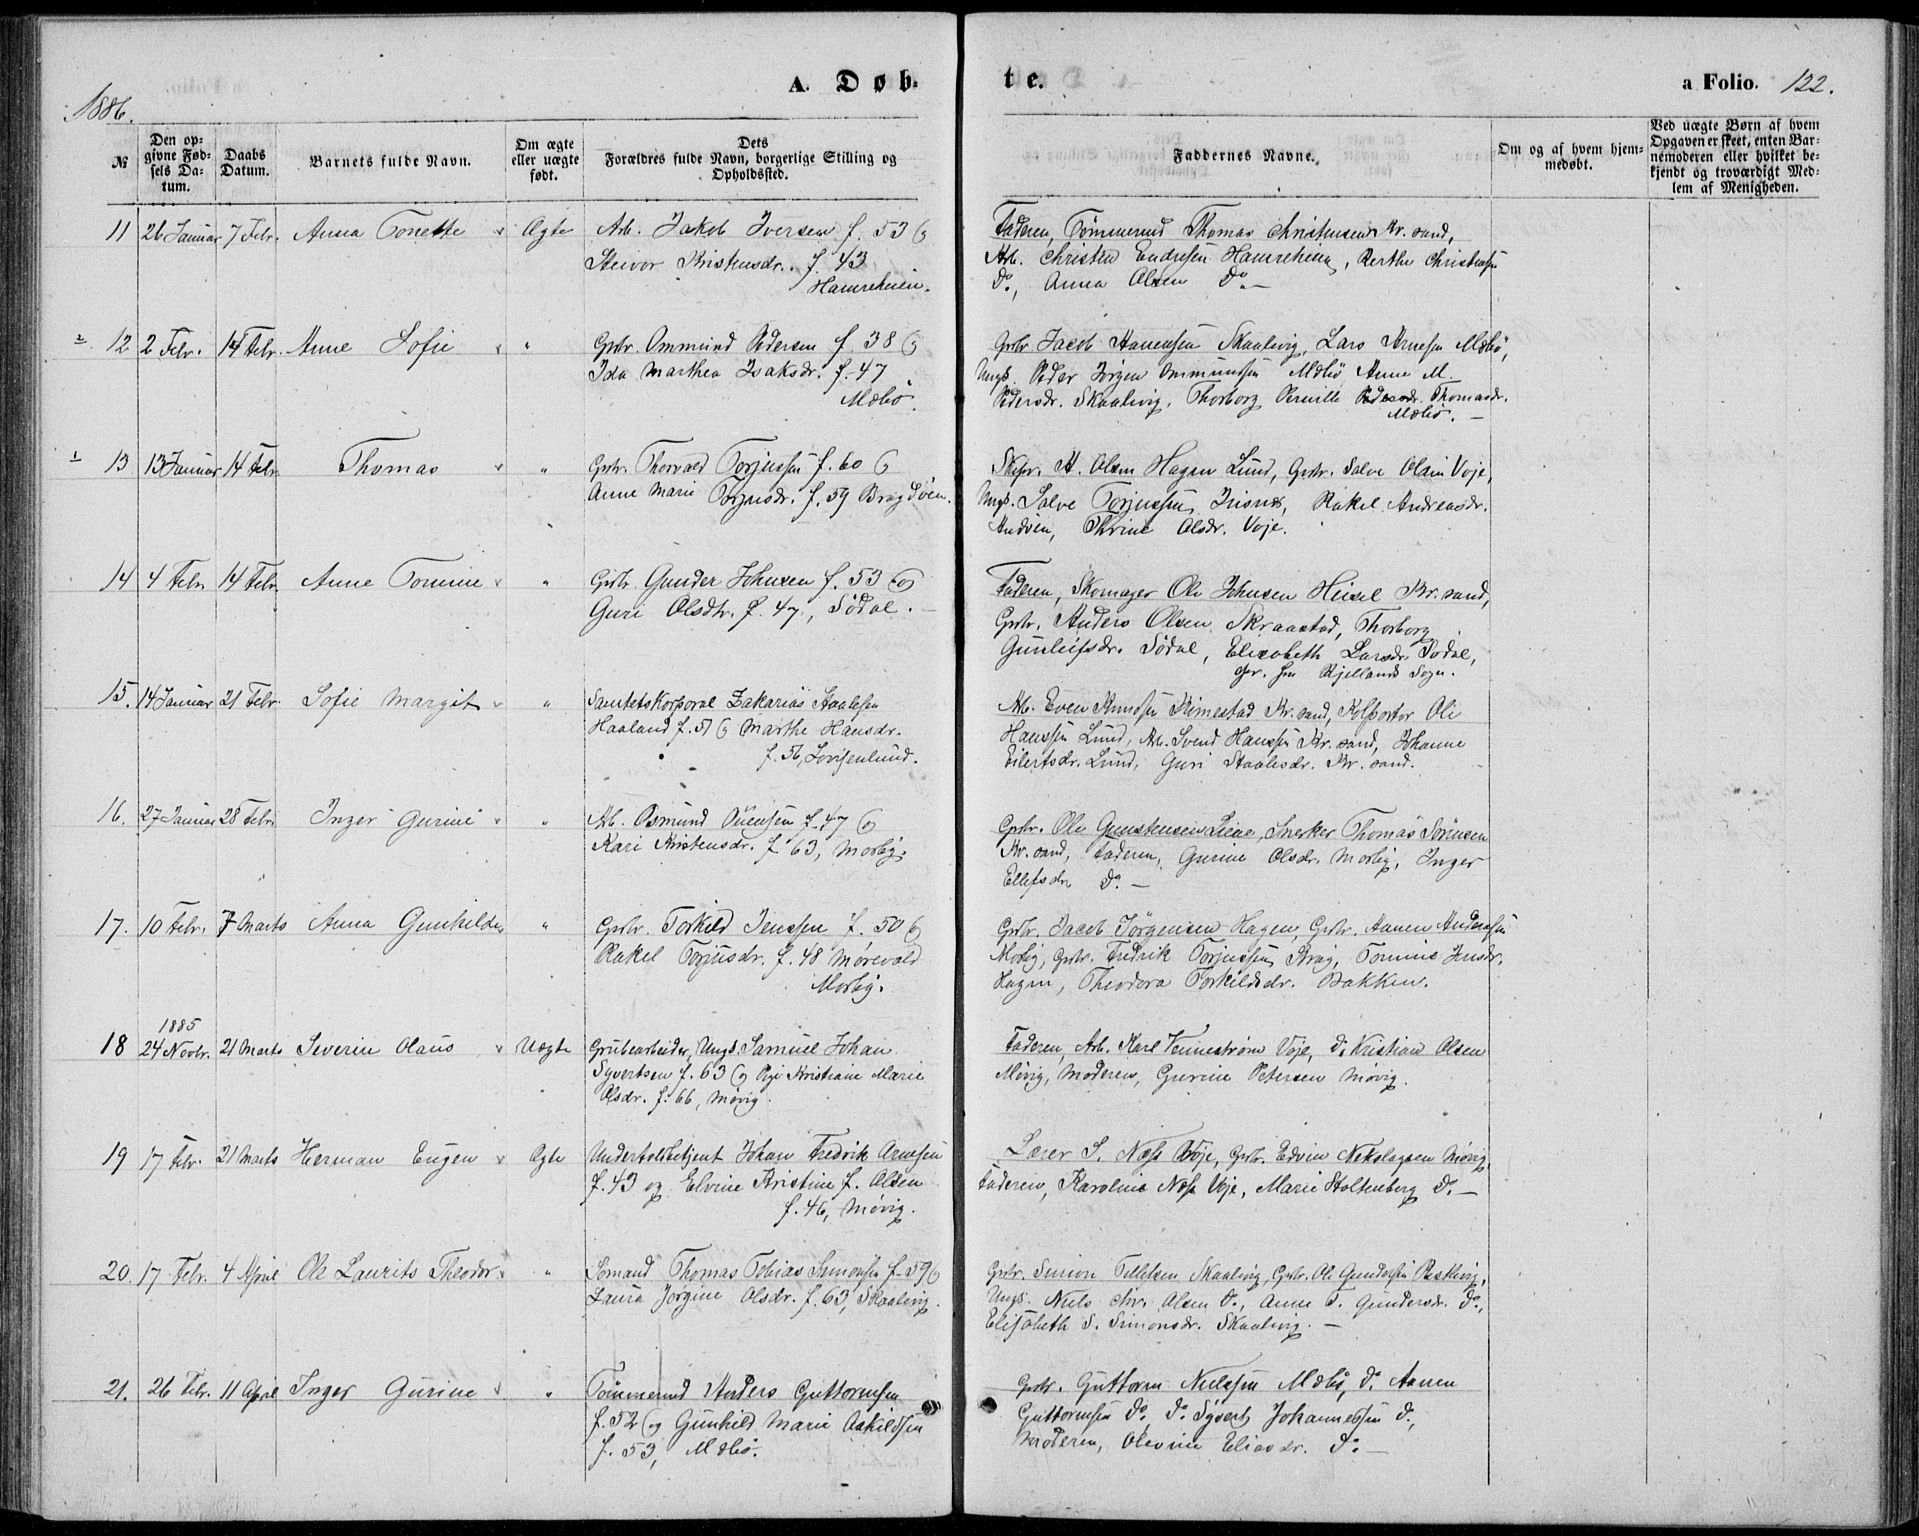 1886.
A. Døb-
te.
a Folio. 122.
№
Den op-
givne Fød-
sels Da-
tum.
Daabs
Datum.
Barnets fulde Navn.
Om ægte
eller uægte
født.
Dets
Forældres fulde Navn, borgerlige Stilling og
Opholdssted.
Faddernes Navne.
Om og af hvem hjem-
medøbt.
Ved uægte Børn af hvem
Opgaven er skeet, enten Bar-
nemoderen eller hvilket be-
kjendt og troværdigt Med-
lem af Menigheden.
11 26 Januar 7 Febr. Anna Tonette Ægte Arb. Jakob Iversen f. 53 og
Steivor Kristensdr. f. 43
Hamreheien.
Faderen, Tømmermd Thomas Christensen Kr.sand,
Arb. Christen Endresen Hamreheien, Berthe Christensen
Do, Anna Olsen Do. —
12 2 Febr. 14 Febr. Anne Sofie " Gbr. Ommund Pedersen f. 38 og
Ida Marthea Isaksdr. f. 47
Mæbø.
Gbr. Jacob Hansen Skaalevig, Lars Arnesen Mæbø,
Ungk. Peder Jørgen Ommundsen Mæbø Anne M.
Pedersdr. Skaalevig, Thorborg Pernille Thomasdr.
Mæbø. —
13 13 Januar 14 Febr. Thomas " Gbr. Thorvald Torjussen f. 60 og
Anne Marie Torjusdr. f. 59 Bragdøen.
Skpr. A. Olsen Hagen Lund, Gbr. Salve Olsen Voje,
Ungk. Salve Torjussen, Rakel Andreasdr.
Andøen, Thrine Olsdr. Voje.
14 4 Febr 14 Febr. Anne Tomine " Gbr. Gunder Johnsen f. 53 og
Guri Olsdtr. f. 47, Sødal. —
Faderen, Skomager Ole Johnsen Heisel Kr.sand,
Gbr. Anders Olsen Skraastad, Thorborg
Gunleifsdr. Sødal, Elisabeth Larsdr. Sødal,
Kjellands Sogn.
15. 14 Januar 21 Febr. Sofie Margit " Sanitetskorporal Zakarias Staalesen
Haaland f. 51 og Marthe Hansdr.
f. 56, Lovisenlund.
Arb. Even Kimestad Kr.sand, Kolportør Ole
Hanssen Lund, Arb. Svend Hanssen Kr.sand, Johanne
Eilertsdr. Lund, Guri Staalesdr. Kr.sand.
16. 27 Januar 28 Febr. Inger Gurine " Arb. Osmund f. 47 og
Kari Kristensdr. f. 63, Mosby.
Gbr. Ole Gunstensen, Snekker Thomas Sørensen
Kr.sand, Faderen, Gurine Olsdr. Mosby, Inger
Ellefsdr Do. —
17. 10 Febr. 7 Marts Anna Gunhilde " Gbr. Torkild Jenssen f. 50 og
Rakel Torjusdr. f. 48 Mørevold
Mosby.
Gbr. Jacob Jørgensen Hagen, Gbr. Aanen Andersen
Mosby, Gbr. Fredrik Torjussen Krag, Tomine Jensdr.
Hagen, Theodora Torkildsdr. Bakken.
1885
18 24 Novbr. 21 Marts Severin Olaus Uægte Grubearbeider, Ungk. Samuel Johan
Syvertsen f. 63 og Pige Kristiane Marie
Olsdr. f. 66, Møvig.
Faderen, Arb. Karl Vennestrøm Voje, do Kristian Olsen
Møvig, Moderen, Gurine Petersen Møvig.
19 17 Febr. 21 Marts Herman Eugen Ægte Undertoldbetjent Johan Fredrik Arnesen
f. 43 og Elvine Kristine f. Olsen
f. 46, Møvig.
Lærer S. Næss Voje, Gbr. Edvin Møvig,
Faderen, Karoline Næss Voje, Marie Stoltenberg Do. —
20. 17 Febr. 4 April Ole Laurits Theodor " Sømand Thomas Tobias Simonsen f. 59 og
Laura Jørgine Olsdr. f. 63, Skaalevig.
Gbr. Simon Tellefsen Skaalevig, Gbr. Ole Gundersen,
Ungk. Niels Chr. Olsen Do., Anne T. Gundersdr. Do,
Elisabeth S. Simonsdr. Skaalevig. —
21. 26 Febr. 11 April Inger Gurine " Tømmermd Anders Guttormsen
f. 52 og Gunhild Marie Askildsen
f. 53, Mæbø.
Gbr. Guttorm Nielssen Mæbø, do Aanen
Guttormsen Do, do Syvert Johannessen Do,
Moderen, Olevine Eliasdr. Do. —